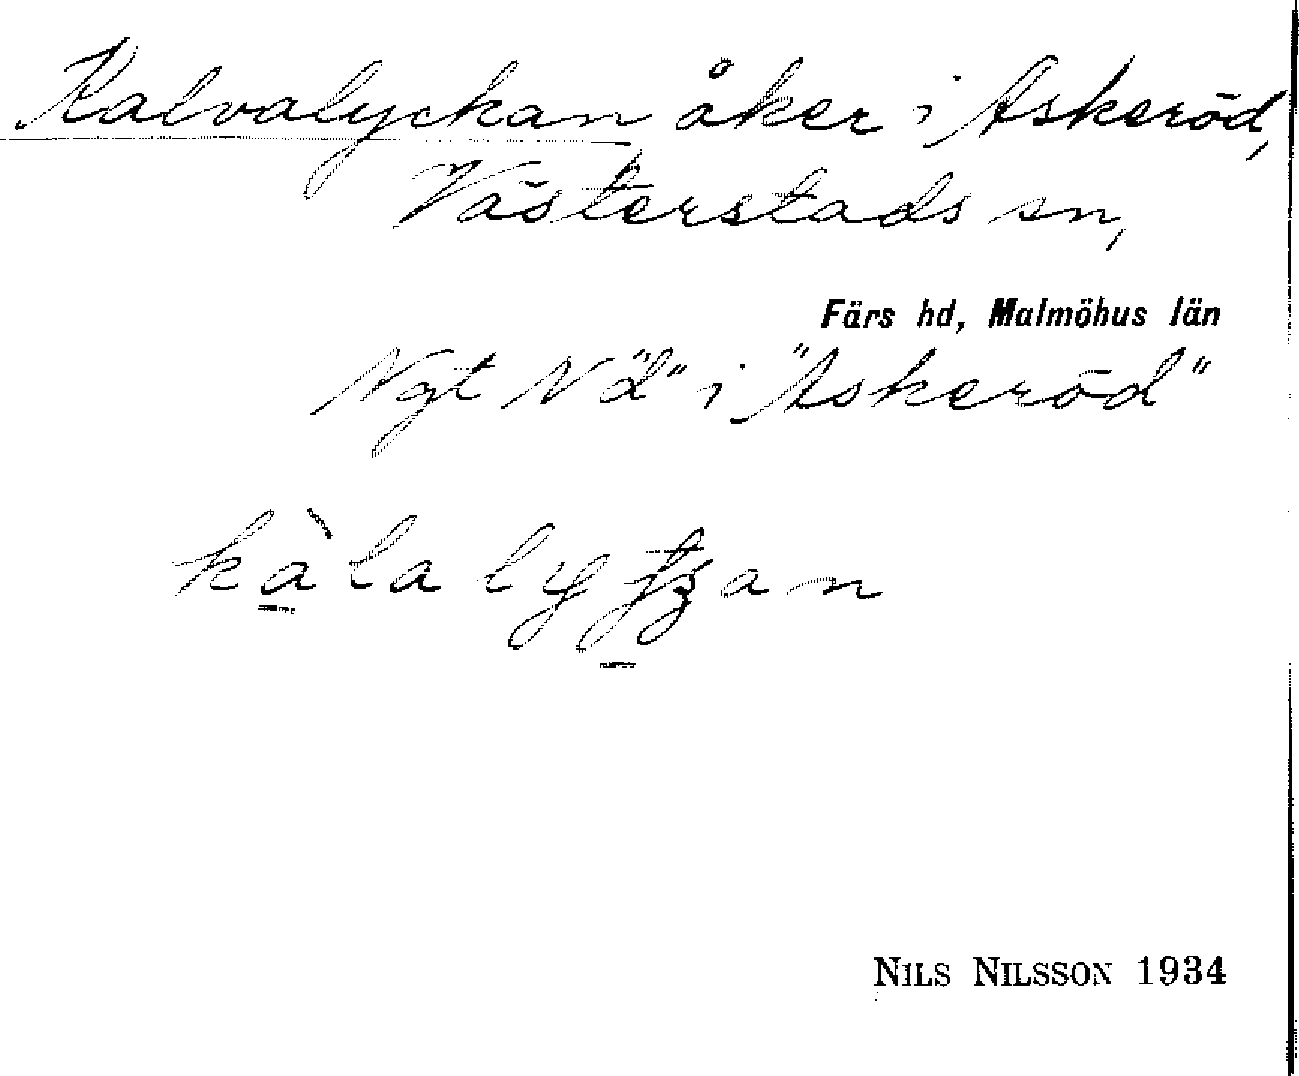 Kalvalyckan åker i Askeröd,
Västerstads sn,
Färs hd, Malmöhus län
Ngt N "d" i "Askeröd"
NILS NILSSON 1934